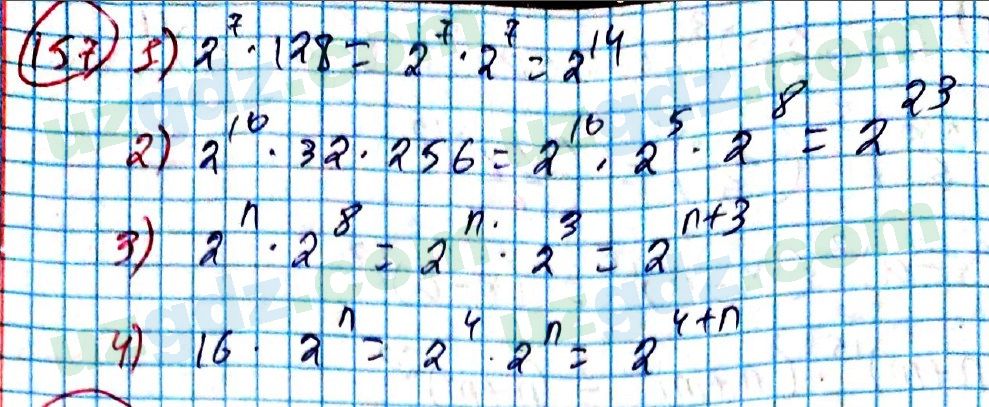 157) 1) 2⁷ · 128 = 2⁷ · 2⁷ = 2¹⁴
2) 2¹⁰ · 32 · 256 = 2¹⁰ · 2⁵ · 2⁸ = 2²³
3) 2ⁿ · 2⁸ = 2ⁿ · 2³ = 2ⁿ⁺³
4) 16 · 2ⁿ = 2⁴ · 2ⁿ = 2⁴⁺ⁿ
uzgdz.com